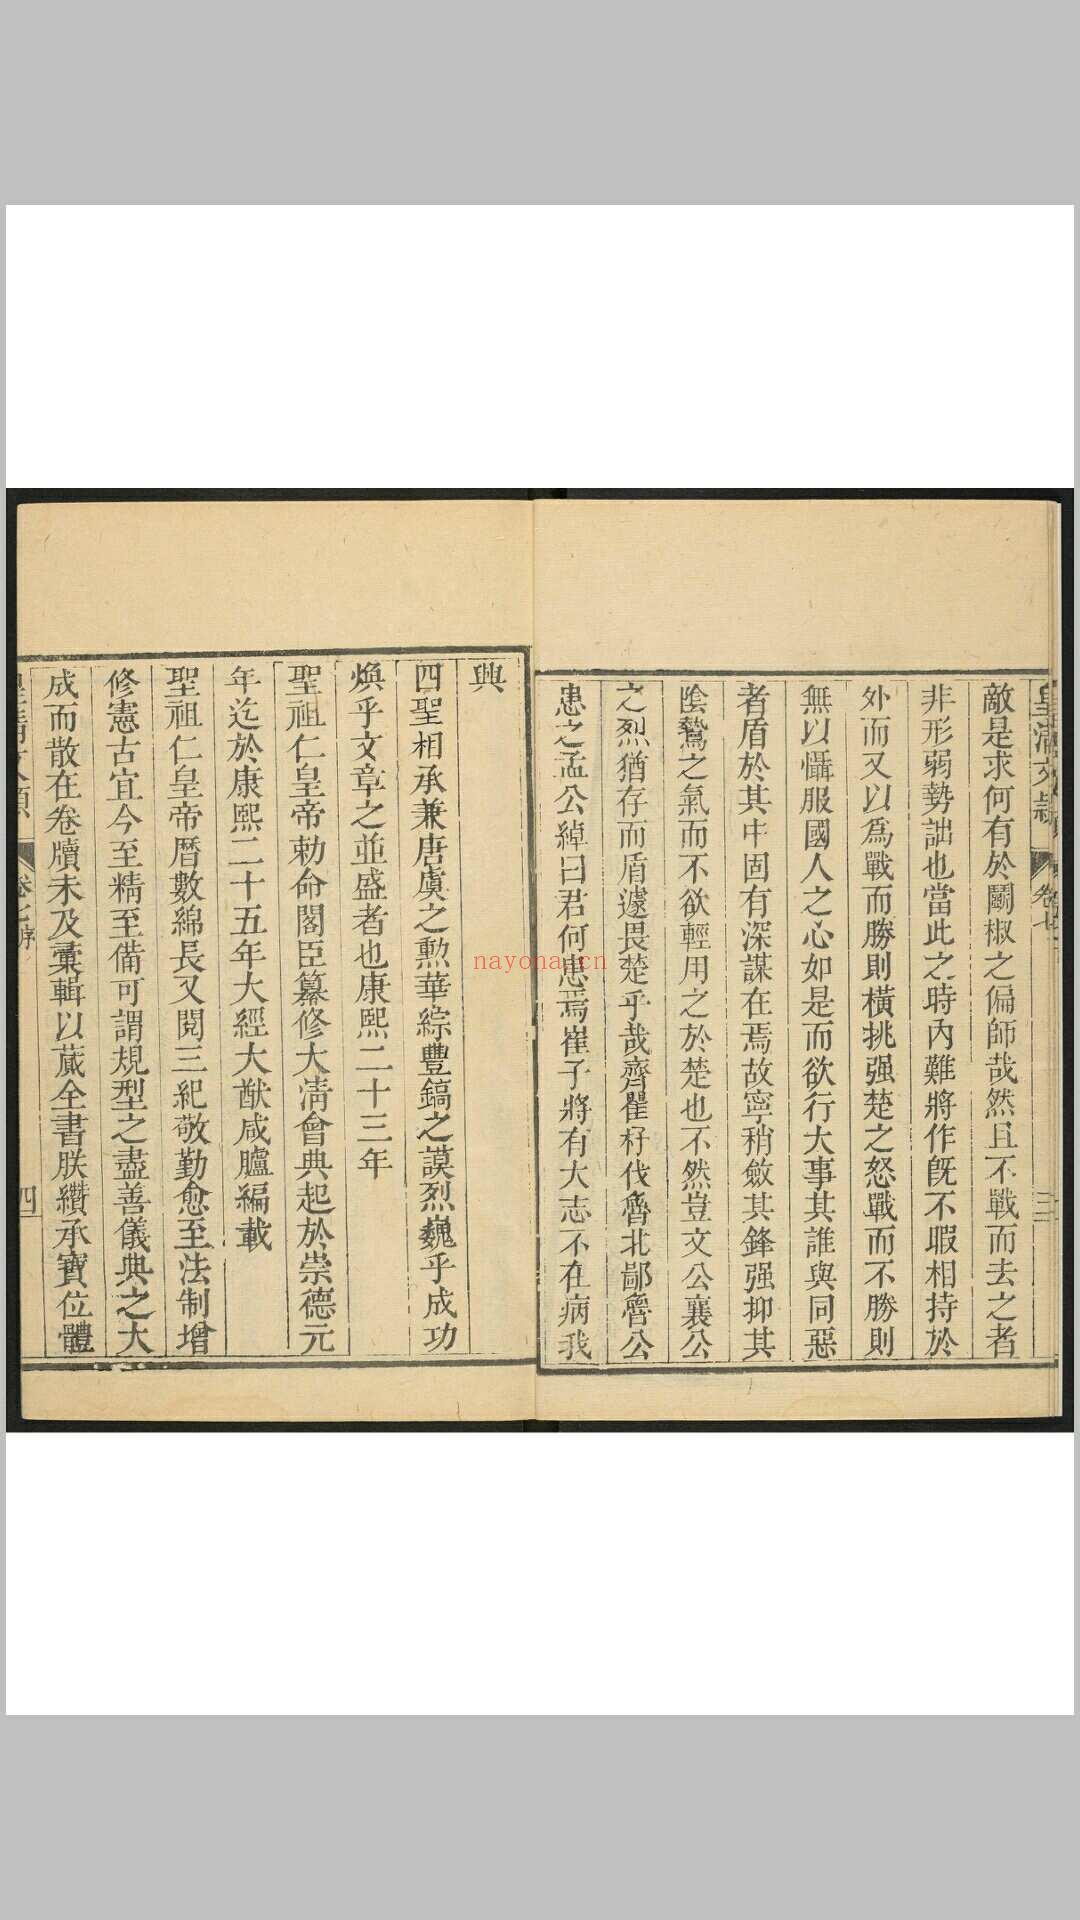 敵是求何有於鬭椒之偏師哉然且不戰而去之者
非形弱勢詘也當此之時內難將作旣不暇相持於
外而又以爲戰而勝則橫挑强楚之怒戰而不勝則
無以懾服國人之心如是而欲行大事其誰與同惡
者盾於其中固有深謀在焉故寧稍斂其鋒强抑其
陰鷙之氣而不欲輕用之於楚也不然豈文公襄公
之烈猶存而盾遽畏楚乎哉齊崔杼伐魯北鄙魯公
患之孟公綽曰君何患焉崔子將有大志不在病我
興
四聖相承兼唐虞之勳華綜豐鎬之謨烈巍乎成功
煥乎文章之並盛者也康熙二十三年
聖祖仁皇帝勅命閣臣纂修大清會典起於崇德元
年迄於康熙二十五年大經大猷咸臚編載
聖祖仁皇帝曆數綿長又閱三紀敬勤愈至法制增
修憲古宜今至精至備可謂規型之盡善儀典之大
成而散在卷牘未及彙輯以蕆全書朕纘承寶位體
卷七
四
nayona.cn